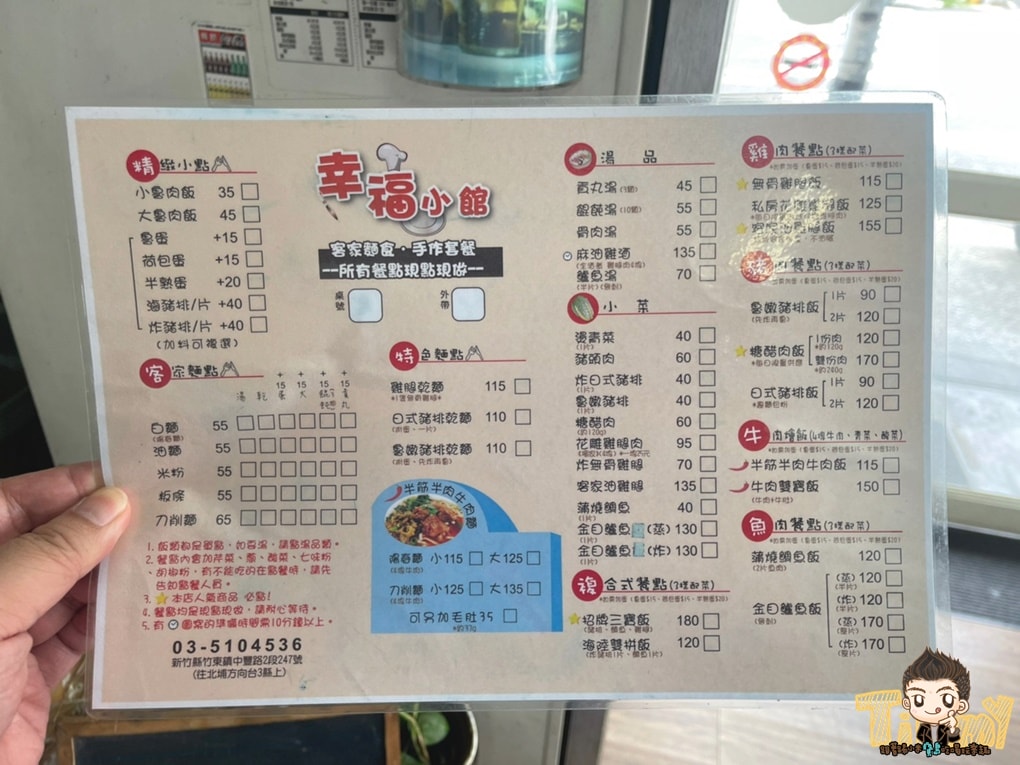 精緻小點
小魯肉飯 35
大魯肉飯 45
魯蛋 +15
荷包蛋 +15
半熟蛋 +20
海豬排/片 +40
炸豬排/片 +40
(加料可複選)
客家麵點
+15 +15 +15 +15
湯 乾 蛋 大
白麵 55
(陽春麵)
油麵 55
米粉 55
板條 55
刀削麵 65
1. 飯類都是單點，如需湯，請點湯品類。
2. 餐點內會加芹菜、蔥、酸菜、七味粉、
胡椒粉，有不能吃的在點餐時，請先
告知點餐人員。
3. ⭐本店人氣商品 必點!
4. 餐點均是現點現做，請耐心等待。
5. 有 圖案的準備時間需10分鐘以上。
03-5104536
新竹縣竹東鎮中豐路2段247號
(往北埔方向台3縣上)
幸福小館
客家麵食·手作套餐
--所有餐點現點現做--
桌號
外帶
特色麵點
雞腿乾麵 115
日式豬排乾麵 110
魯嫩豬排乾麵 110
半筋半肉牛肉麵
湯麵 小115 大125
刀削麵 小125 大135
可另加毛肚35
湯品
貢丸湯 45
餛飩湯 55
骨肉湯 55
麻油雞酒 135
鱸魚湯 70
小菜
燙青菜 40
豬頭肉 60
炸日式豬排 40
魯嫩豬排 40
糖醋肉 60
(約120g)
花雕雞腿肉 95
炸無骨雞腿 70
客家油雞腿 135
蒲燒鯛魚 40
(1片)
金目鱸魚 (蒸) 130
(1片)
金目鱸魚 (炸) 130
(1片)
複合式餐點(3樣配菜)
⭐招牌三寶飯 180
海陸雙拼飯 120
雞肉餐點(3樣配菜)
⭐無骨雞腿飯 115
私房花雕雞腿飯 125
⭐客家油雞腿飯 155
豬肉餐點(3樣配菜)
魯嫩豬排飯
1片 90
2片 120
⭐糖醋肉飯
1份肉 120
*約120g
雙份肉 170
*約240g
日式豬排飯
1片 90
2片 120
牛肉燴飯(4塊牛肉、青菜、酸菜)
半筋半肉牛肉飯 115
牛肉雙寶飯 150
(牛肉+牛肚)
魚肉餐點(3樣配菜)
蒲燒鯛魚飯 120
(2片魚肉)
金目鱸魚飯
(蒸) 120
(半片)
(炸) 120
(半片)
(蒸) 170
(整片)
(炸) 170
(整片)